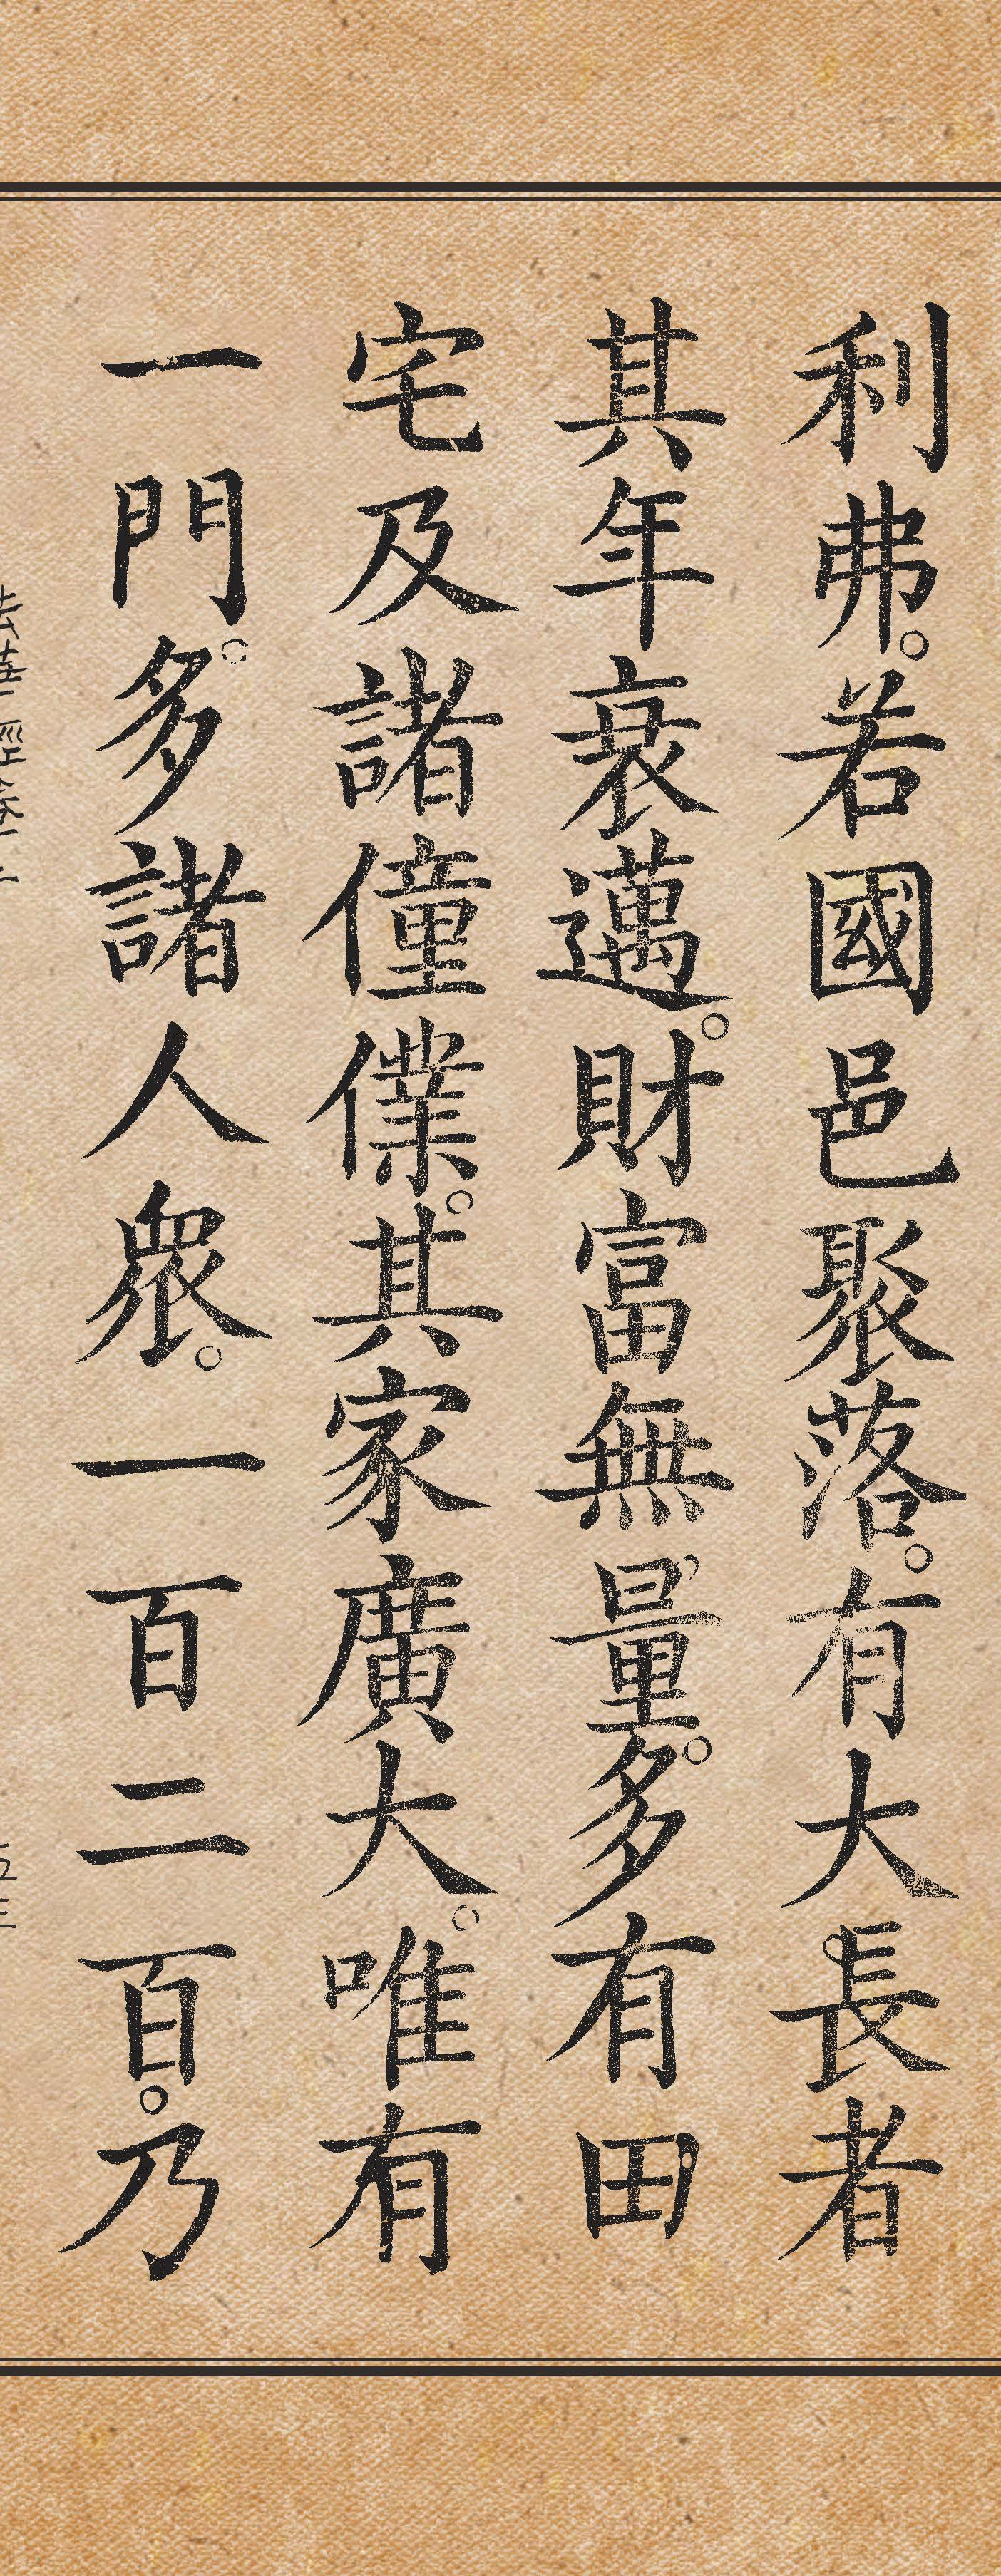 利弗。若國邑聚落。有大長者
其年衰邁。財富無量。多有田
宅及諸僮僕。其家廣大。唯有
一門。多諸人衆。一百二百。乃